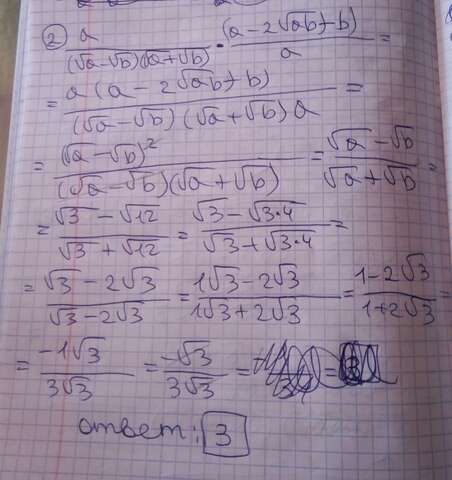 ② a/((√a-√b)(√a+√b)) · (a-2√ab+b)/a =
= a(a-2√ab+b)/((√a-√b)(√a+√b)a) =
= (√a-√b)²/((√a-√b)(√a+√b)) = (√a-√b)/(√a+√b) =
= (√3-√12)/(√3+√12) = (√3-√3*4)/(√3+√3*4) =
= (√3-2√3)/(√3-2√3) = (1√3-2√3)/(1√3+2√3) = (1-2√3)/(1+2√3) =
= -1√3/3√3 = -√3/3√3 = =
ответ: 3